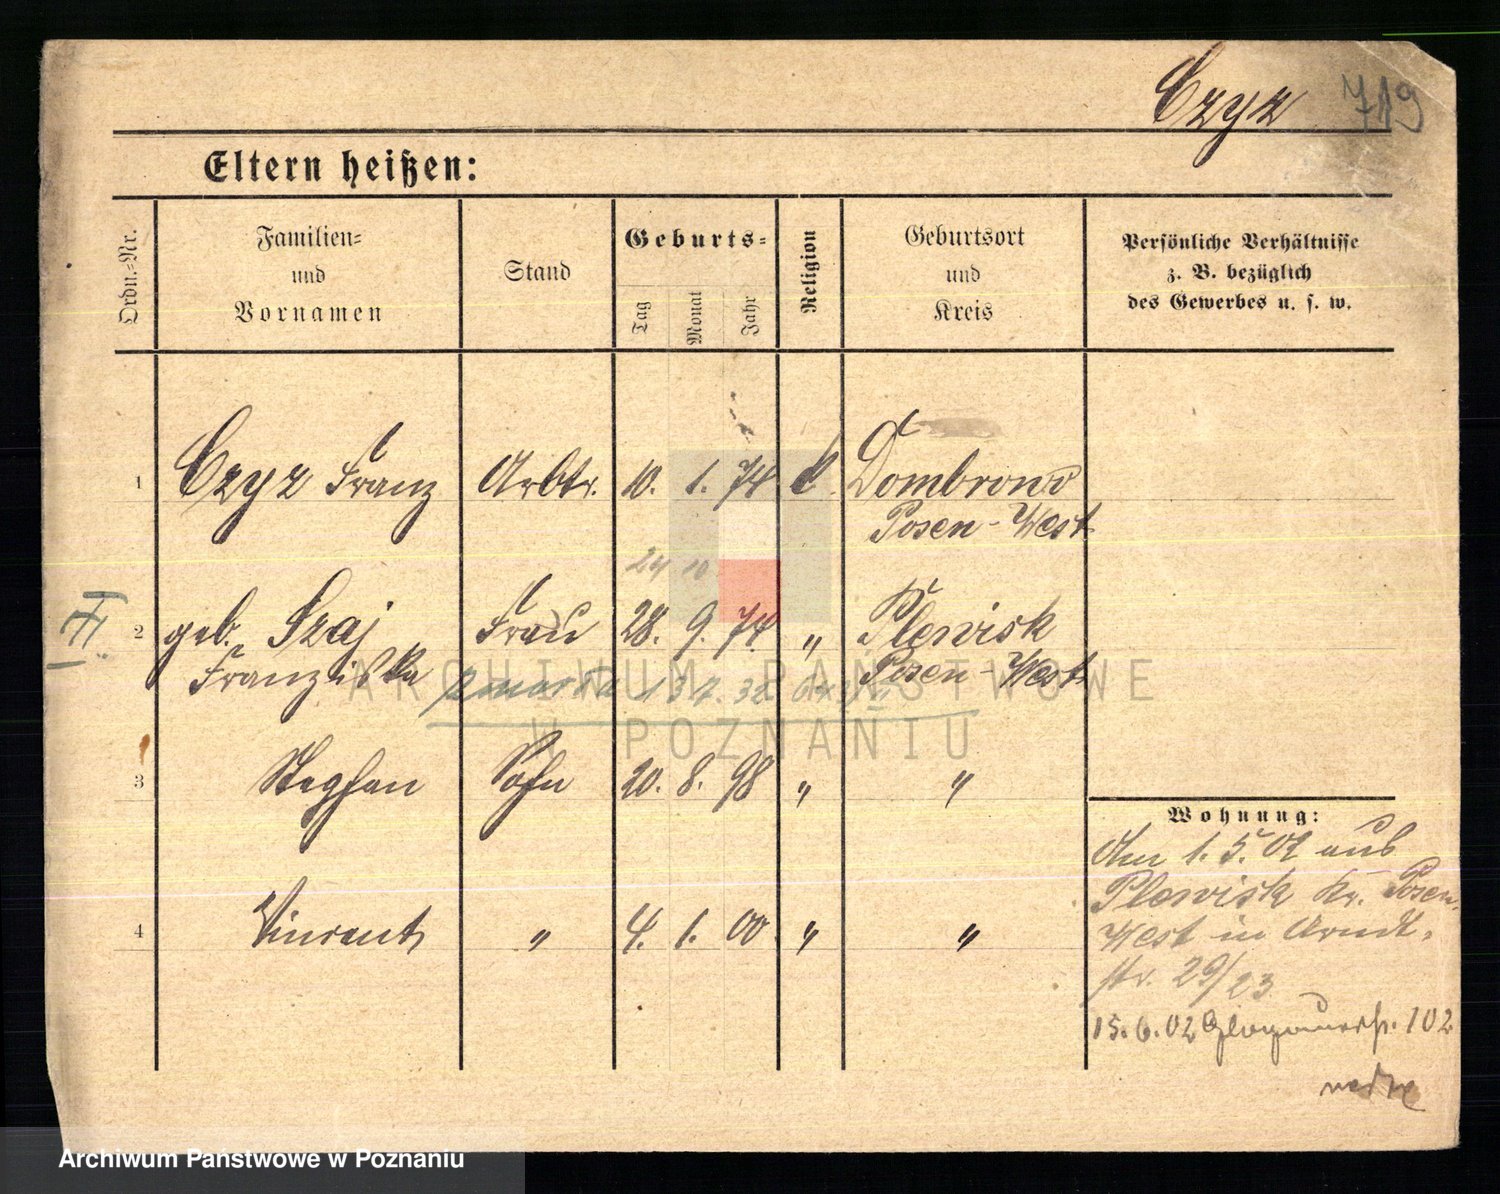 Czyz 719
Eltern heißen:
Ordn.-Nr.
Familien-
und
Vornamen
Stand
Geburts-
Tag
Monat
Jahr
Religion
Geburtsort
und
Kreis
Persönliche Verhältnisse
z. B. bezüglich
des Gewerbes u. s. w.
1 Czyz Franz Arbtr. 10. 1. 74 k. Dombrowo
Posen-West
24 10
III 2 geb. Szaj Frau 28. 9. 74 " Plewisk
Franziska Posen-West
zmarła 13 7. 32
ARCHIWUM PAŃSTWOWE
W POZNANIU
3 Stephan Sohn 20. 8. 98 " "
Wohnung:
Am 1. 5. 02 aus
Plewisk Kr. Posen-
4 Vincent " 4. 1. 00 " "
West in Arndt-
str. 29/23
15.6.02 Glogauerstr. 102
Archiwum Państwowe w Poznaniu